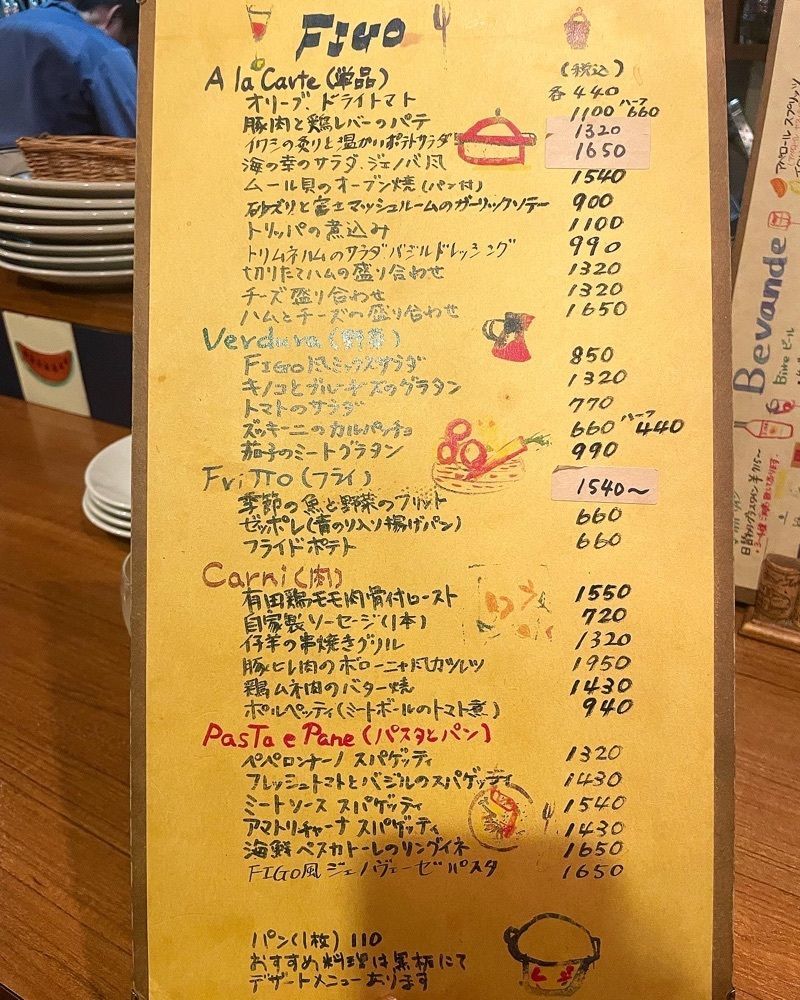 FIGO
A la Carte (単品) (税込)
オリーブ、ドライトマト 各440
豚肉と鶏レバーのパテ 1100 ハーフ660
イワシの炙りと温かいポテトサラダ 1320
海の幸のサラダ、ジェノバ風 1650
ムール貝のオーブン焼(パン付) 1540
砂ズリと富士マッシュルームのガーリックソテー 900
トリッパの煮込み 1100
トリムネハムのサラダ バジルドレッシング 990
切りたてハムの盛り合わせ 1320
チーズ盛り合わせ 1320
ハムとチーズの盛り合わせ 1650
Verdura (野菜)
FIGO風ミックスサラダ 850
キノコとブルーチーズのグラタン 1320
トマトのサラダ 770
ズッキーニのカルパッチョ 660 ハーフ440
茄子のミートグラタン 990
Fritto (フライ)
季節の魚と野菜のフリット 1540~
ゼッポレ(青のり入り揚げパン) 660
フライドポテト 660
Carni (肉)
有田鶏モモ肉骨付ロースト 1550
自家製ソーセージ(1本) 720
仔羊の串焼きグリル 1320
豚ヒレ肉のボローニャ風カツレツ 1950
鶏ムネ肉のバター焼 1430
ポルペッティ(ミートボールのトマト煮) 940
Pasta e Pane (パスタとパン)
ペペロンチーノ スパゲッティ 1320
フレッシュトマトとバジルのスパゲッティ 1430
ミートソース スパゲッティ 1540
アマトリチャーナ スパゲッティ 1430
海鮮ペスカトーレのリングイネ 1650
FIGO風ジェノヴェーゼパスタ 1650
パン(1枚) 110
おすすめ料理は黒板にて
デザートメニューあります
Bevande
Birre ビール
アペロール スプリッツ